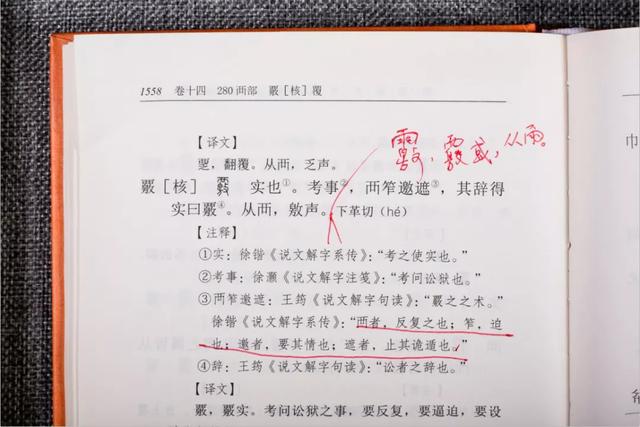 1558 卷十四 280 襾部 覈［核］覆
【译文】
覂，翻覆。从襾，乏声。
覈，或，从雨。
覈［核］ 实也①。考事②，襾笮邀遮③，其辞得
实曰覈④。从襾，敫声。下革切（hé）
【注释】
①实：徐锴《说文解字系传》：“考之使实也。”
②考事：徐灏《说文解字注笺》：“考问讼狱也。”
③襾笮邀遮：王筠《说文解字句读》：“覈之之术。”
徐锴《说文解字系传》：“襾者，反复之也；笮，迫
也；邀者，要其情也；遮者，止其诡遁也。”
④辞：王筠《说文解字句读》：“讼者之辞也。”
【译文】
覈，覈实。考问讼狱之事，要反复，要逼迫，要设
巾